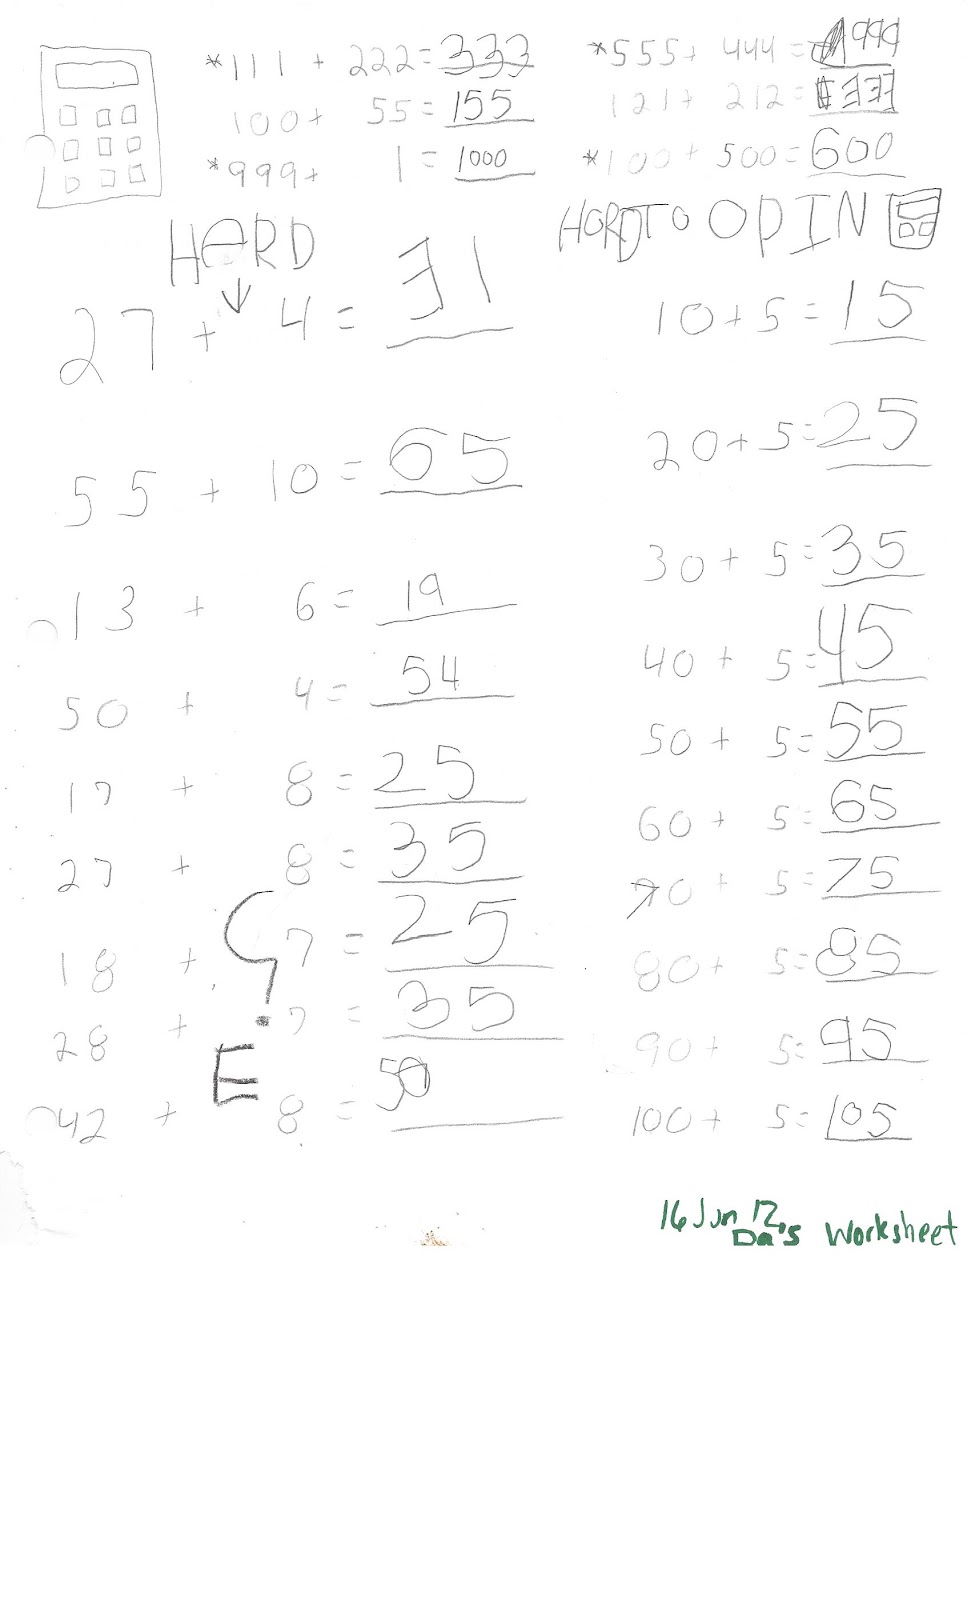 *111 + 222=333
100+ 55=155
*999+ 1=1000
*555+ 444=999
121+ 212=333
*100+ 500=600
HARD
27 + 4=31
55 + 10=65
13 + 6=19
50 + 4=54
17 + 8=25
27 + 8=35
18 + 7=25
28 + 7=35
E
42 + 8=50
HORDTO OPIN
10+5=15
20+5=25
30+ 5=35
40+ 5=45
50+ 5=55
60+ 5=65
70+ 5=75
80+ 5=85
90+ 5=95
100+ 5=105
16 Jun 12
Da's Worksheet